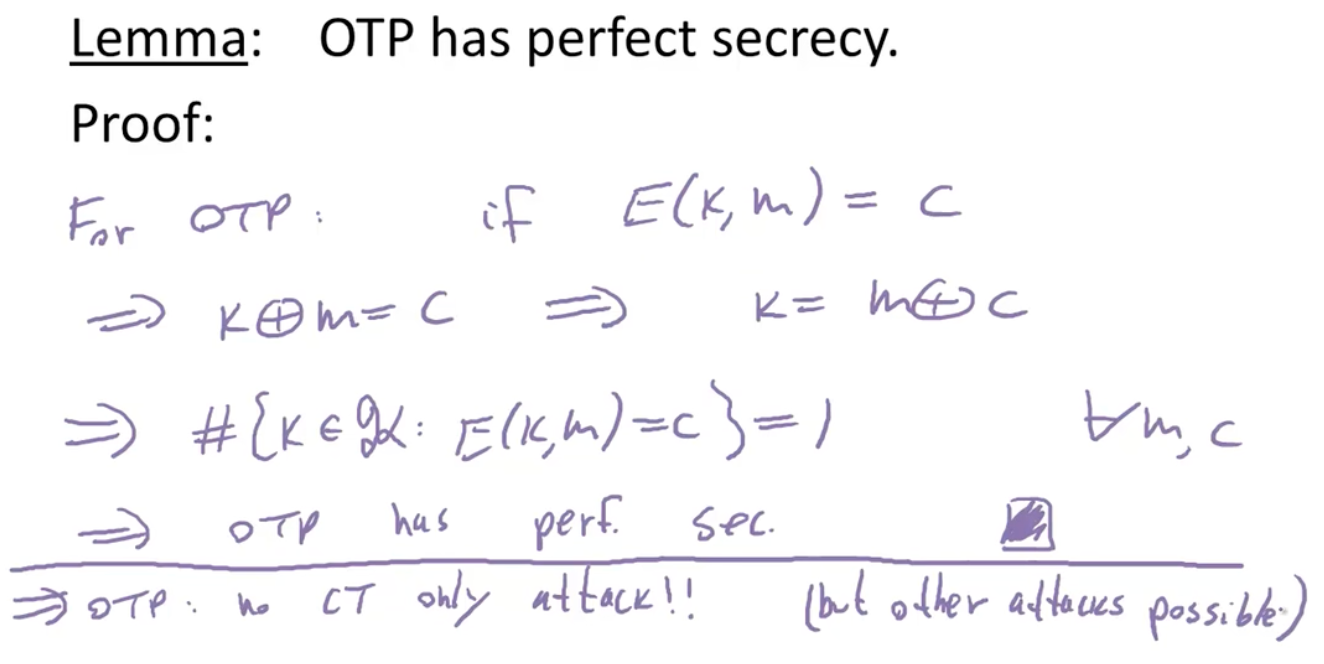 Lemma: OTP has perfect secrecy.
Proof:
For OTP: if E(k, m) = c
⇒ k⊕m = c ⇒ k = m⊕c
⇒ #{k ∈ 𝒦: E(k,m)=c} = 1 ∀m, c
⇒ OTP has perf. sec.
⇒ OTP: no CT only attack!! (but other attacks possible.)